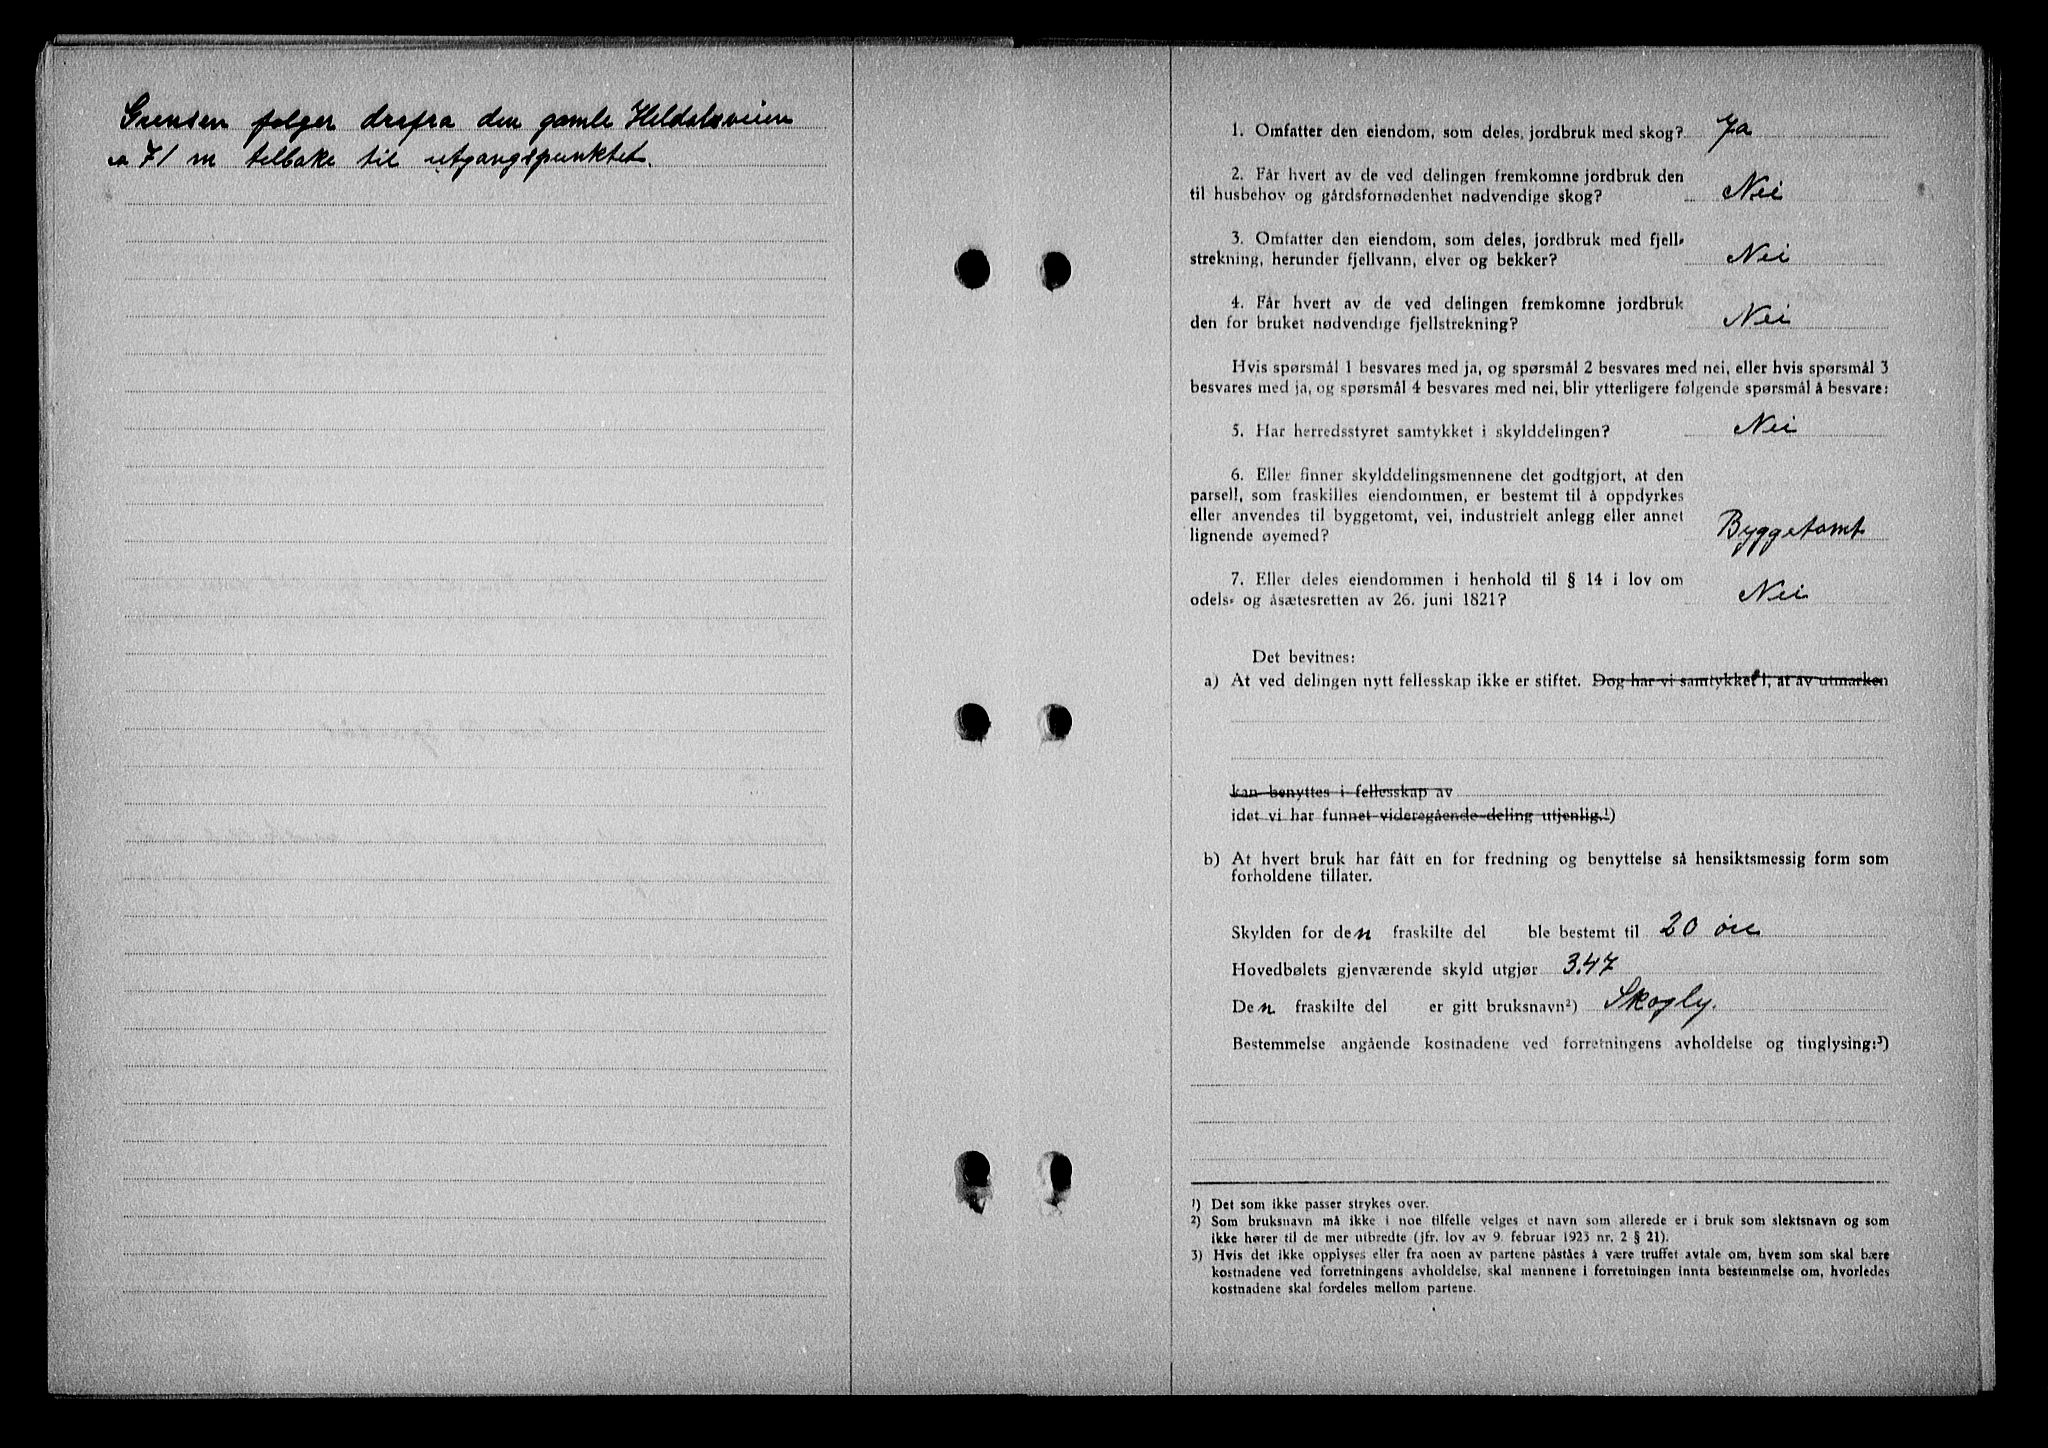 Grensen følger derfra den gamle Heldalsveien
ca 71 m tilbake til utgangspunktet.
1. Omfatter den eiendom, som deles, jordbruk med skog? Ja
2. Får hvert av de ved delingen fremkomne jordbruk den
til husbehov og gårdsfornødenhet nødvendige skog? Nei
3. Omfatter den eiendom, som deles, jordbruk med fjell-
strekning, herunder fjellvann, elver og bekker? Nei
4. Får hvert av de ved delingen fremkomne jordbruk
den for bruket nødvendige fjellstrekning? Nei
Hvis spørsmål 1 besvares med ja, og spørsmål 2 besvares med nei, eller hvis spørsmål 3
besvares med ja, og spørsmål 4 besvares med nei, blir ytterligere følgende spørsmål å besvare:
5. Har herredsstyret samtykket i skylddelingen? Nei
6. Eller finner skylddelingsmennene det godtgjort, at den
parsell, som fraskilles eiendommen, er bestemt til å oppdyrkes
eller anvendes til byggetomt, vei, industrielt anlegg eller annet
lignende øyemed? Byggetomt
7. Eller deles eiendommen i henhold til § 14 i lov om
odels- og åsætesretten av 26. juni 1821? Nei
Det bevitnes:
a) At ved delingen nytt fellesskap ikke er stiftet. Dog har vi samtykket i, at av utmarken
kan benyttes i fellesskap av
idet vi har funnet videregående deling utjenlig.¹)
b) At hvert bruk har fått en for fredning og benyttelse så hensiktsmessig form som
forholdene tillater.
Skylden for den fraskilte del ble bestemt til 20 öre
Hovedbølets gjenværende skyld utgjør 3.47
Den fraskilte del er gitt bruksnavn²) Skogly.
Bestemmelse angående kostnadene ved forretningens avholdelse og tinglysing:³)
¹) Det som ikke passer strykes over.
²) Som bruksnavn må ikke i noe tilfelle velges et navn som allerede er i bruk som slektsnavn og som
ikke hører til de mer utbredte (jfr. lov av 9. februar 1923 nr. 2 § 21).
3) Hvis det ikke opplyses eller fra noen av partene påståes å være truffet avtale om, hvem som skal bære
kostnadene ved forretningens avholdelse, skal mennene i forretningen innta bestemmelse om, hvorledes
kostnadene skal fordeles mellom partene.